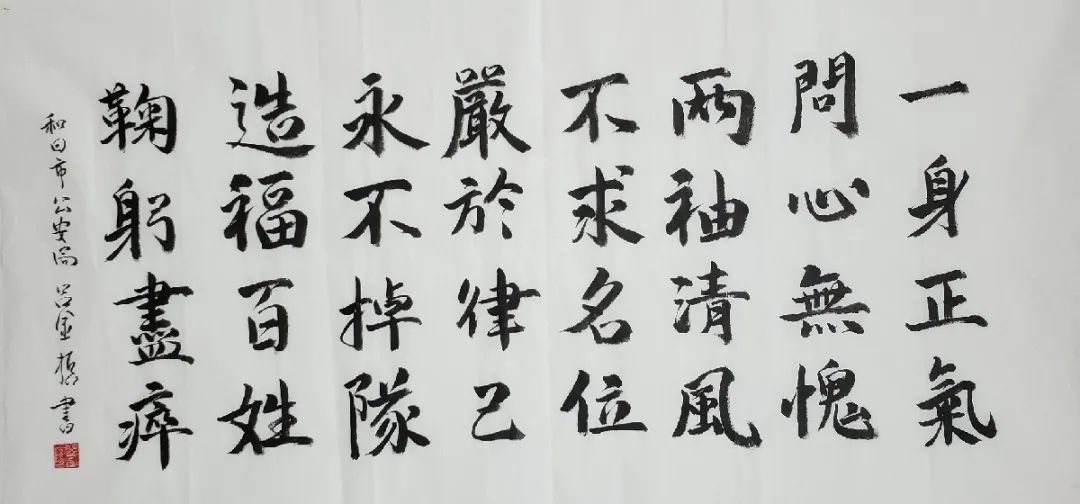 一身正氣
問心無愧
兩袖清風
不求名位
嚴於律己
永不掉隊
造福百姓
鞠躬盡瘁
和田市公安局呂金橋書